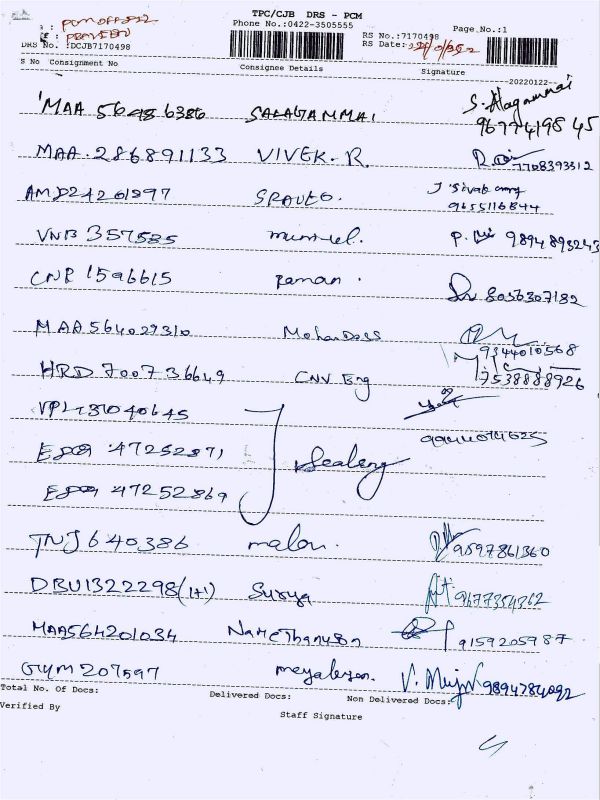 TPC/CJB DRS - PCM
Phone No.:0422-3505555
RS No.:7170498 Page No.:1
DRS No. :DCJB7170498 RS Date:
S No Consignment No Consignee Details Signature
20220122--
MAA 56486386 SALAGAMMAI S. Alagammai
9677419845
MAA 286891133 VIVEK. R. 7708393312
AMD24261897 SRAUTO. 9655116844
VNB 357585 P. 9894893243
CNR 1596615 raman. 8056307182
MAA 564029310 Mohan Dass 9344010568
HRD 700736649 CNV Eng 7538888926
VPL 731040645
47252871 Sealeng
47252869
TNJ 640386 malon. 9597861360
DBU1322298(1+1) Surya 9677354362
MAA564201034 9159205987
GYM 207597 V. 9894784092
Total No. Of Docs: Delivered Docs: Non Delivered Docs:
Verified By Staff Signature